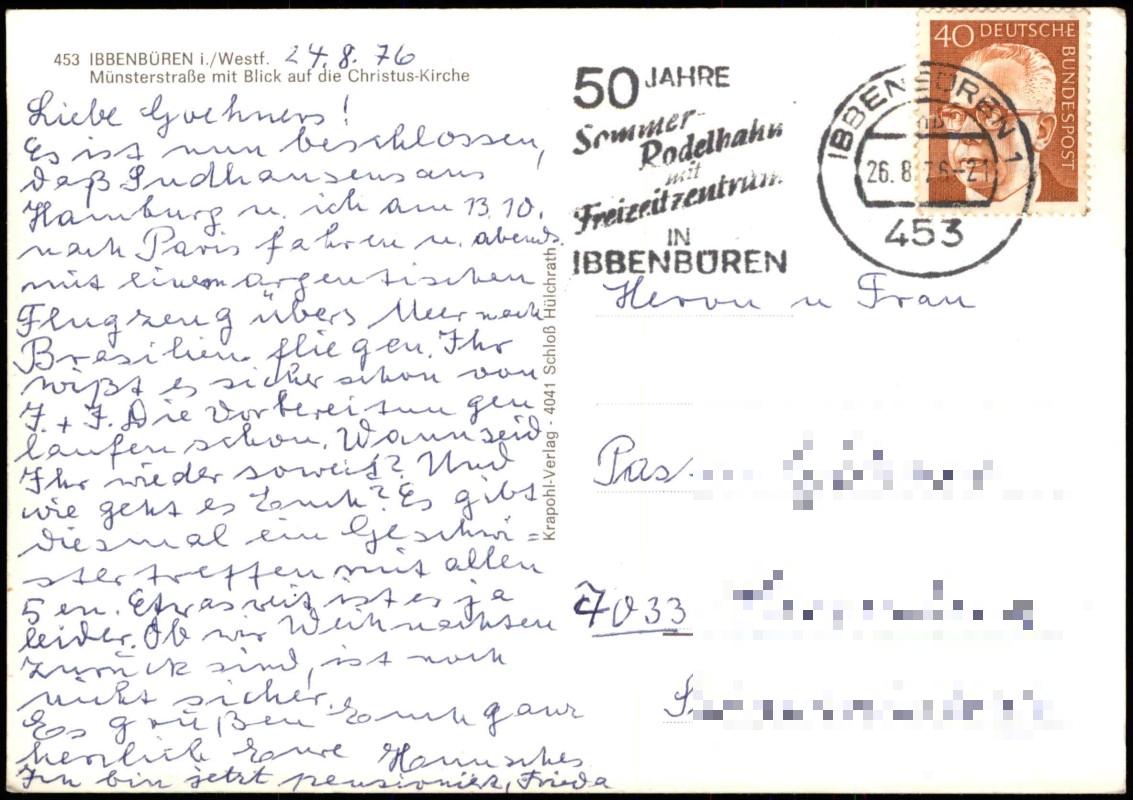 453 IBBENBÜREN i./Westf. 24.8.76
Münsterstraße mit Blick auf die Christus-Kirche
Liebe Goehners!
Es ist nun beschlossen,
daß Sudhausens aus
Hamburg u. ich am 13.10.
nach Paris fahren u. abends
mit einem argentischen
Flugzeug übers Meer nach
Brasilien fliegen. Ihr
wißt es sicher schon von
J. + F. Die Vorbereitungen
laufen schon. Wann seid
Ihr wieder soweit? Und
wie geht es Euch? Es gibt
diesmal ein Geschwi=
stertreffen mit allen
5 en. Etwas weit ist es ja
leider. Ob wir Weihnachten
zurück sind, ist noch
nicht sicher.
Es grüßen Euch ganz
herzlich Eure Hannsches
Ich bin jetzt pensioniert, Frieda
Krapohl-Verlag - 4041 Schloß Hülchrath
50 JAHRE
Sommer-
Rodelbahn
mit
Freizeitzentrum
IN
IBBENBÜREN
IBBENBÜREN 1
26. 8. 76-21
453
40 DEUTSCHE
BUNDESPOST
Herrn u Frau
Pas.
7033